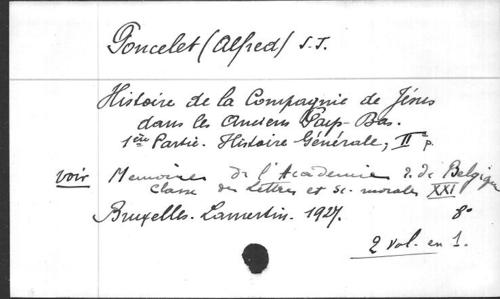 Poncelet (Alfred) S.J.
Histoire de la Compagnie de Jésus
dans les Anciens Pays-Bas.
1ère Partie. Histoire Générale, II p.
voir Memoires de l'Academie r. de Belgique
Classe des Lettres et Sc. morales XXI
Bruxelles. Lamertin. 1927. 8°
2 vol. en 1.